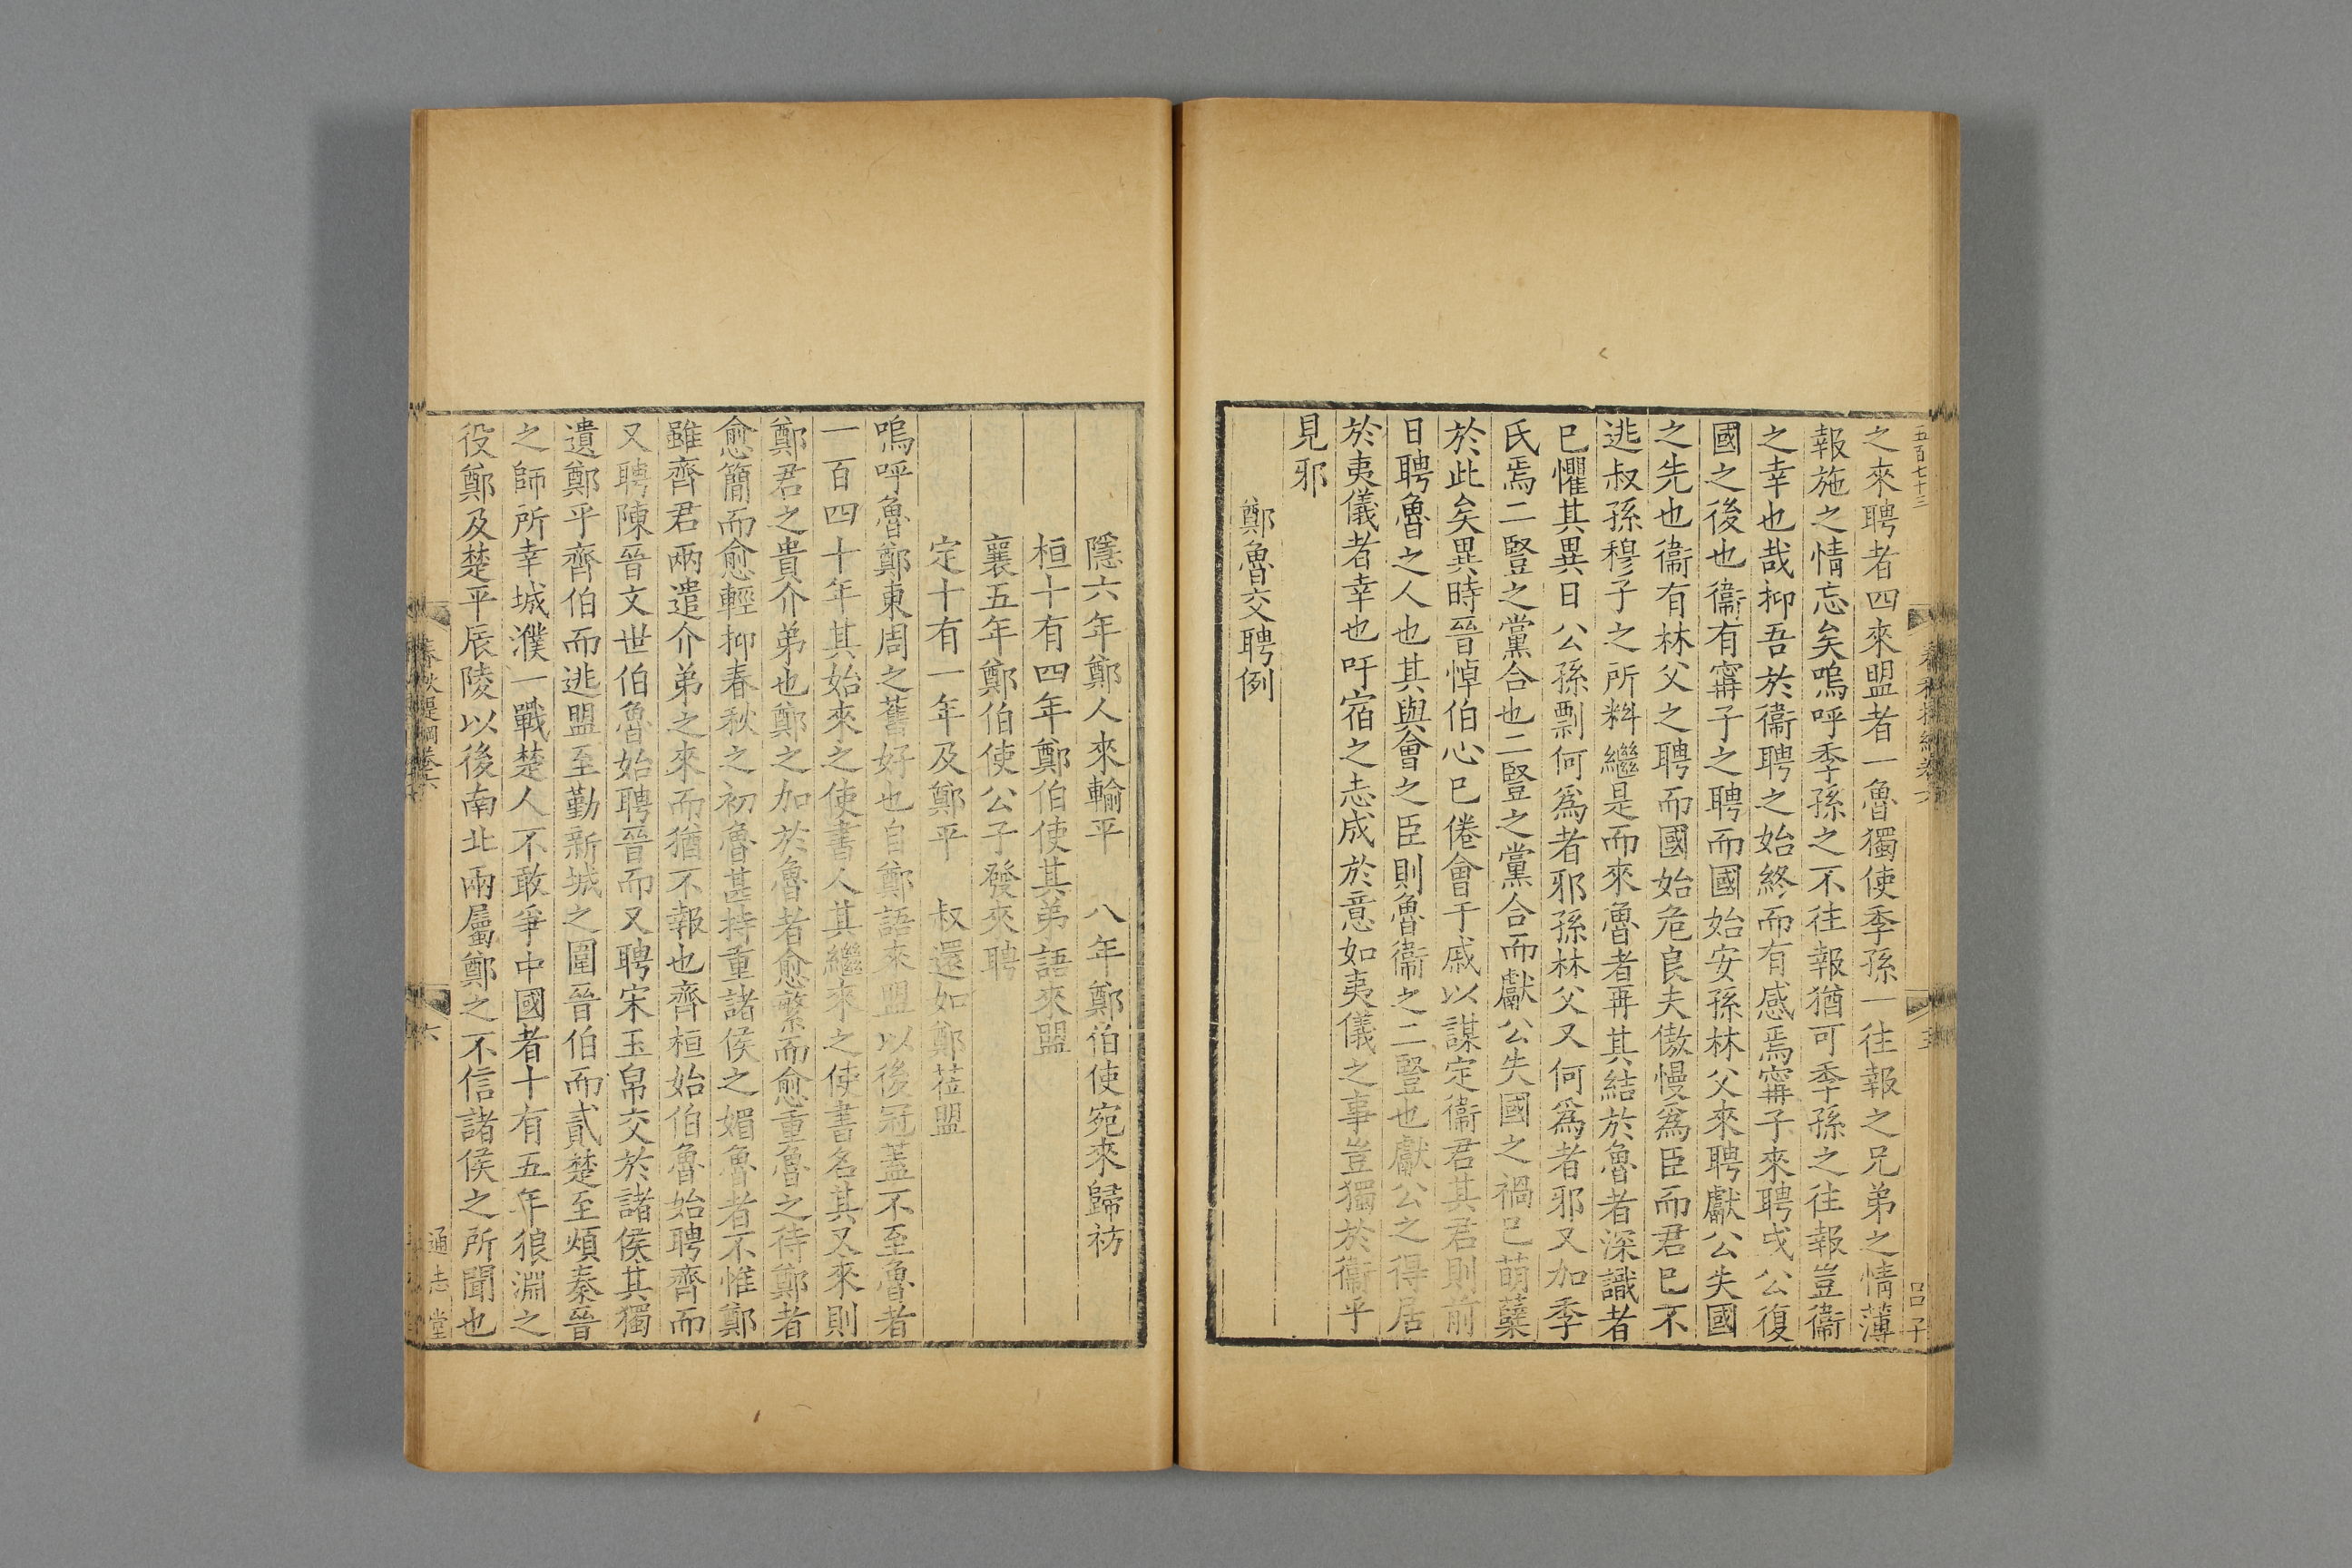 五百七十三
之來聘者四來盟者一魯獨使季孫一往報之兄弟之情薄
報施之情忘矣嗚呼季孫之不往報猶可季孫之往報豈衞
之幸也哉抑吾於衞聘之始終而有感焉甯子來聘成公復
國之後也衞有甯子之聘而國始安孫林父來聘獻公失國
之先也衞有林父之聘而國始危良夫傲慢爲臣而君已不
逃叔孫穆子之所料繼是而來魯者再其結於魯者深識者
已懼其異日公孫剽何爲者邪孫林父又何爲者邪又加季
氏焉二豎之黨合也二豎之黨合而獻公失國之禍已萌蘖
於此矣異時晉悼伯心已倦會于戚以謀定衞君其君則前
日聘魯之人也其與會之臣則魯衞之二豎也獻公之得居
於夷儀者幸也吁宿之志成於意如夷儀之事豈獨於衞乎
見邪
鄭魯交聘例
呂子
隱六年鄭人來輸平　八年鄭伯使宛來歸祊
桓十有四年鄭伯使其弟語來盟
襄五年鄭伯使公子發來聘
定十有一年及鄭平　叔還如鄭莅盟
嗚呼魯鄭東周之舊好也自鄭語來盟以後冠蓋不至魯者
一百四十年其始來之使書人其繼來之使書名其又來則
鄭君之貴介弟也鄭之加於魯者愈繁而愈重魯之待鄭者
愈簡而愈輕抑春秋之初魯甚持重諸侯之媚魯者不惟鄭
雖齊君兩遣介弟之來而猶不報也齊桓始伯魯始聘齊而
又聘陳晉文世伯魯始聘晉而又聘宋玉帛交於諸侯其獨
遺鄭乎齊伯而逃盟至勤新城之圍晉伯而貳楚至煩秦晉
之師所幸城濮一戰楚人不敢爭中國者十有五年狼淵之
役鄭及楚平辰陵以後南北兩屬鄭之不信諸侯之所聞也
春秋提綱卷六
六
通志堂